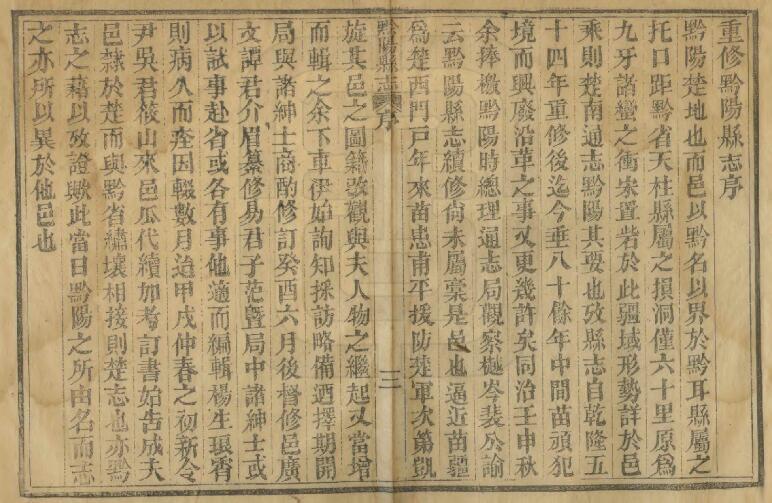 重修黔陽縣志序
黔陽楚地也而邑以黔名以界於黔耳縣屬之
托口距黔省天柱縣屬之損洞僅六十里原爲
九牙諸蠻之衝宋置砦於此疆域形勢詳於邑
乘則楚南通志黔陽其要也攷縣志自乾隆五
十四年重修後迄今垂八十餘年中間苗頑犯
境而興廢沿革之事又更幾許矣同治壬申秋
余捧檄黔陽時總理通志局觀察樾岑裴公諭
云黔陽縣志續修尙未屬稾是邑也逼近苗疆
爲楚西門戸年來苗患甫平援防楚軍次第凱
黔陽縣志 序 三
旋其邑之圖籍改觀與夫人物之繼起又當增
而輯之余下車伊始詢知採訪略備迺擇期開
局與諸紳士商酌修訂癸酉六月後督修邑廣
文譚君介眉纂修易君子范曁局中諸紳士或
以試事赴省或各有事他適而編輯楊生琅霄
則病久而痊因輟數月迨甲戌仲春之初新令
尹吳君筱山來邑瓜代續加考訂書始告成夫
邑隸於楚而與黔省繡壤相接則楚志也亦黔
志之藉以攷證歟此當日黔陽之所由名而志
之亦所以異於他邑也